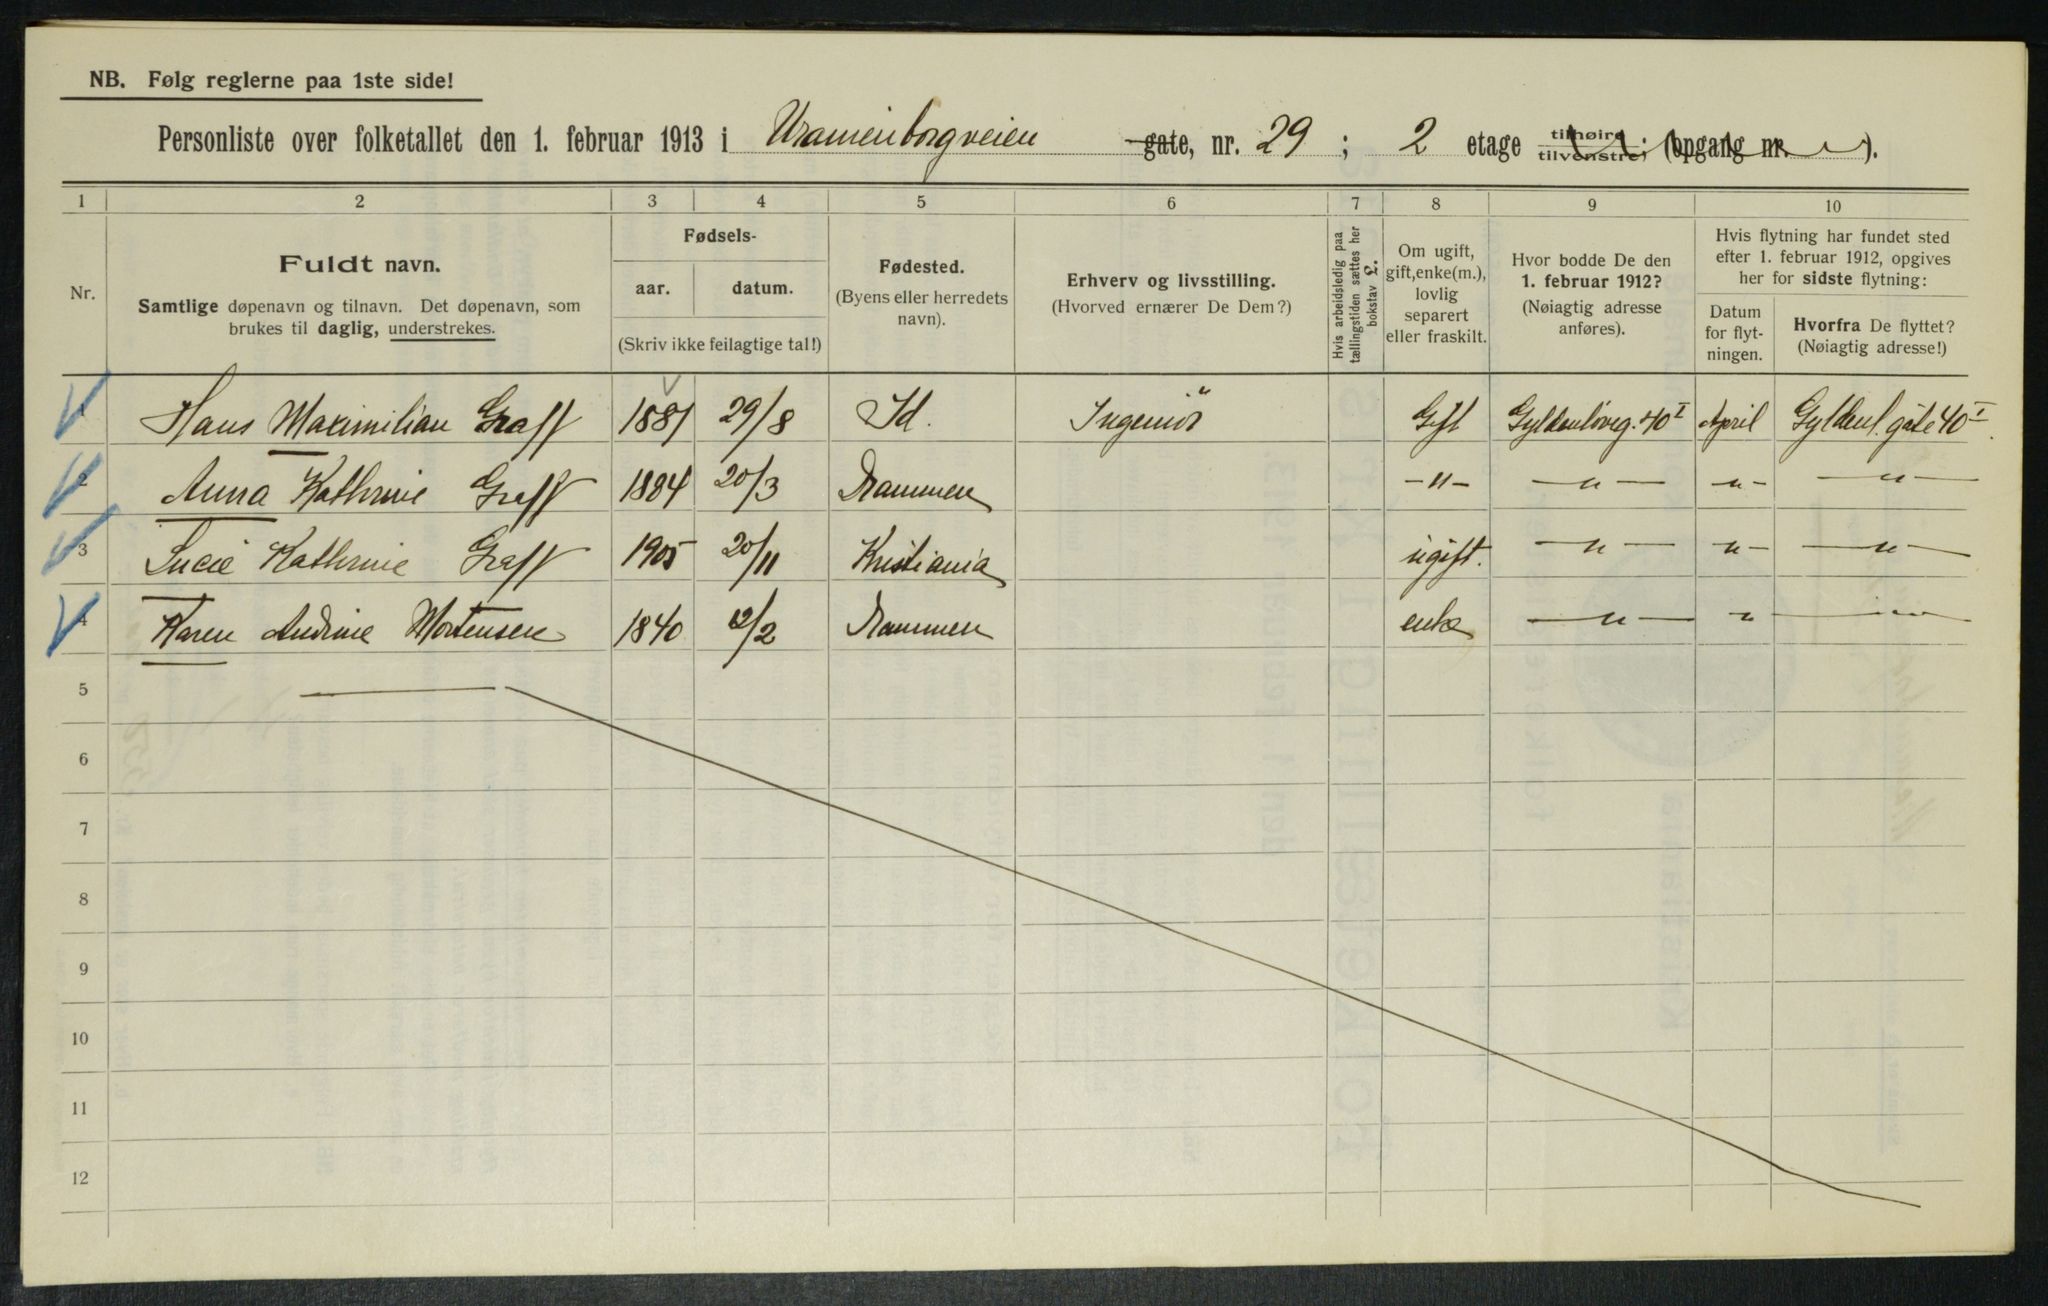 NB. Følg reglerne paa 1ste side!
Personliste over folketallet den 1. februar 1913 i Uranienborgveien gate, nr. 29 ; 2 etage tilhøire tilvenstre; (opgang nr. ).
1 2 3 4 5 6 7 8 9 10
Nr.
Fuldt navn.
Samtlige døpenavn og tilnavn. Det døpenavn, som
brukes til daglig, understrekes.
Fødsels-
aar. datum.
(Skriv ikke feilagtige tal!)
Fødested.
(Byens eller herredets
navn).
Erhverv og livsstilling.
(Hvorved ernærer De Dem?)
Hvis arbeidsledig paa
tællingstiden sættes her
bokstav L.
Om ugift,
gift, enke(m.),
lovlig
separert
eller fraskilt.
Hvor bodde De den
1. februar 1912?
(Nøiagtig adresse
anføres).
Hvis flytning har fundet sted
efter 1. februar 1912, opgives
her for sidste flytning:
Datum
for flyt-
ningen.
Hvorfra De flyttet?
(Nøiagtig adresse!)
1 Hans Maximilian Graff 1881 29/8 Id. Ingeniör Gift Gyldenlöveg. 40 I April Gyldenl. gate 40 I.
2 Anna Kathrine Graff 1884 20/3 Drammen -"- -"- -"- -"-
3 Lucie Kathrine Graff 1905 20/11 Kristiania ugift. -"- -"- -"-
4 Karen Andrine Mortensen 1840 12/2 Drammen enke -"- " -"-
5
6
7
8
9
10
11
12